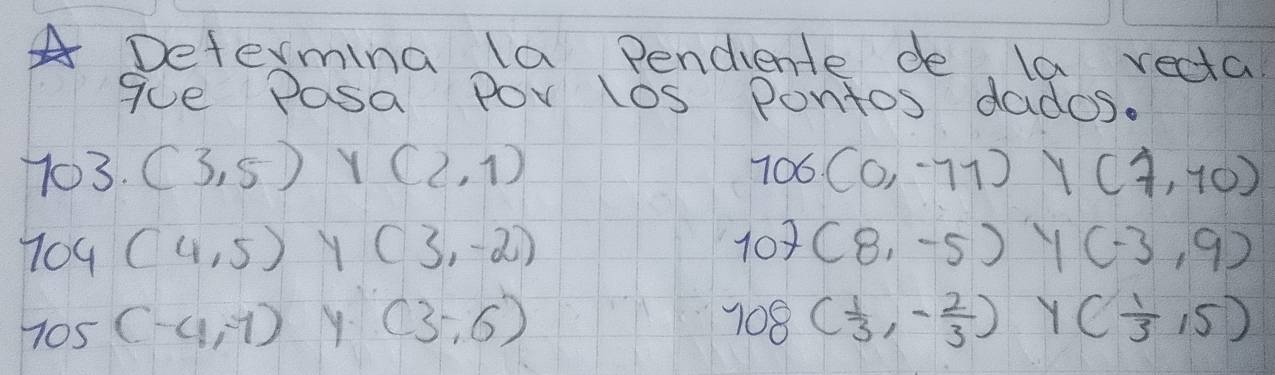 ☆ Determina la Pendiente de la recta
que Pasa Por los Pontos dados.
103. (3,5) Y (2,1)
106. (0,-11) Y (7,10)
104 (4,5) Y (3,-2)
107 (8,-5) Y (-3,9)
105 (-4,-1) Y (3,6)
108 (1/3, -2/3) Y (1/3, 5)